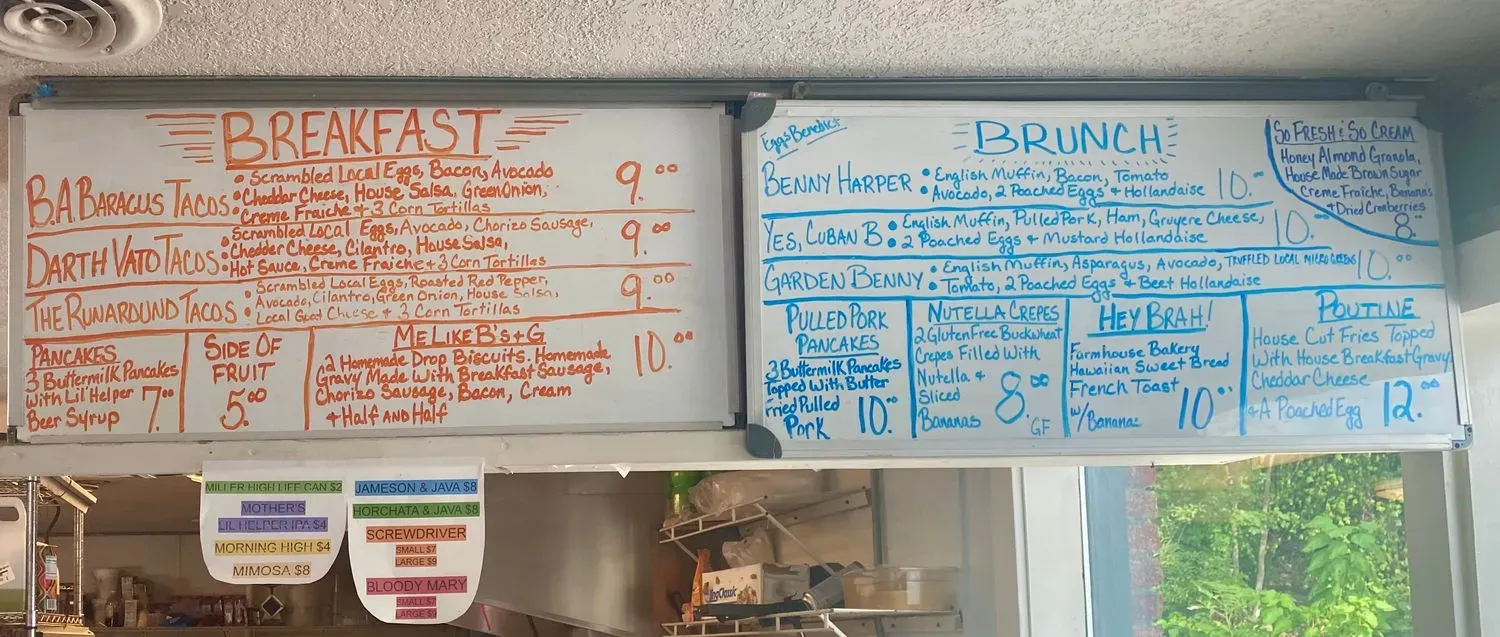 BREAKFAST
B.A BARACUS TACOS
• Scrambled Local Eggs, Bacon, Avocado
• Cheddar Cheese, House Salsa, Green Onion,
Creme Fraiche + 3 Corn Tortillas
9.00
DARTH VATO TACOS
Scrambled Local Eggs, Avocado, Chorizo Sausage,
• Chedder Cheese, Cilantro, House Salsa,
Hot Sauce, Creme Fraiche + 3 Corn Tortillas
9.00
THE RUNAROUND TACOS
Scrambled Local Eggs, Roasted Red Pepper,
• Avocado, Cilantro, Green Onion, House Salsa,
Local Goat Cheese + 3 Corn Tortillas
9.00
PANCAKES
3 Buttermilk Pancakes
With Lil' Helper
Beer Syrup 7.00
SIDE OF
FRUIT
5.00
ME LIKE B's + G
2 Homemade Drop Biscuits. Homemade
Gravy Made With Breakfast Sausage,
Chorizo Sausage, Bacon, Cream
+ Half AND Half
10.00
Eggs Benedict
BRUNCH
BENNY HARPER
• English Muffin, Bacon, Tomato
• Avocado, 2 Poached Eggs + Hollandaise
10.00
YES, CUBAN B
• English Muffin, Pulled Pork, Ham, Gruyere Cheese,
• 2 Poached Eggs + Mustard Hollandaise
10.00
GARDEN BENNY
• English Muffin, Asparagus, Avocado, TRUFFLED LOCAL MICRO GREENS
• Tomato, 2 Poached Eggs + Beet Hollandaise
10.00
SO FRESH & SO CREAM
Honey Almond Granola,
House Made Brown Sugar
Creme Fraiche, Bananas
+ Dried Cranberries
8.00
PULLED PORK
PANCAKES
3 Buttermilk Pancakes
Topped With Butter
Fried Pulled
Pork 10.00
NUTELLA CREPES
2 Gluten Free Buckwheat
Crepes Filled With
Nutella +
Sliced
Bananas
8.00
GF
HEY BRAH!
Farmhouse Bakery
Hawaiian Sweet Bread
French Toast
w/Bananas 10.00
POUTINE
House Cut Fries Topped
With House Breakfast Gravy
Cheddar Cheese
+ A Poached Egg 12.00
MILLER HIGH LIFE CAN $2
MOTHER'S
LIL HELPER IPA $4
MORNING HIGH $4
MIMOSA $8
JAMESON & JAVA $8
HORCHATA & JAVA $8
SCREWDRIVER
SMALL $7
LARGE $9
BLOODY MARY
SMALL $7
LARGE $9